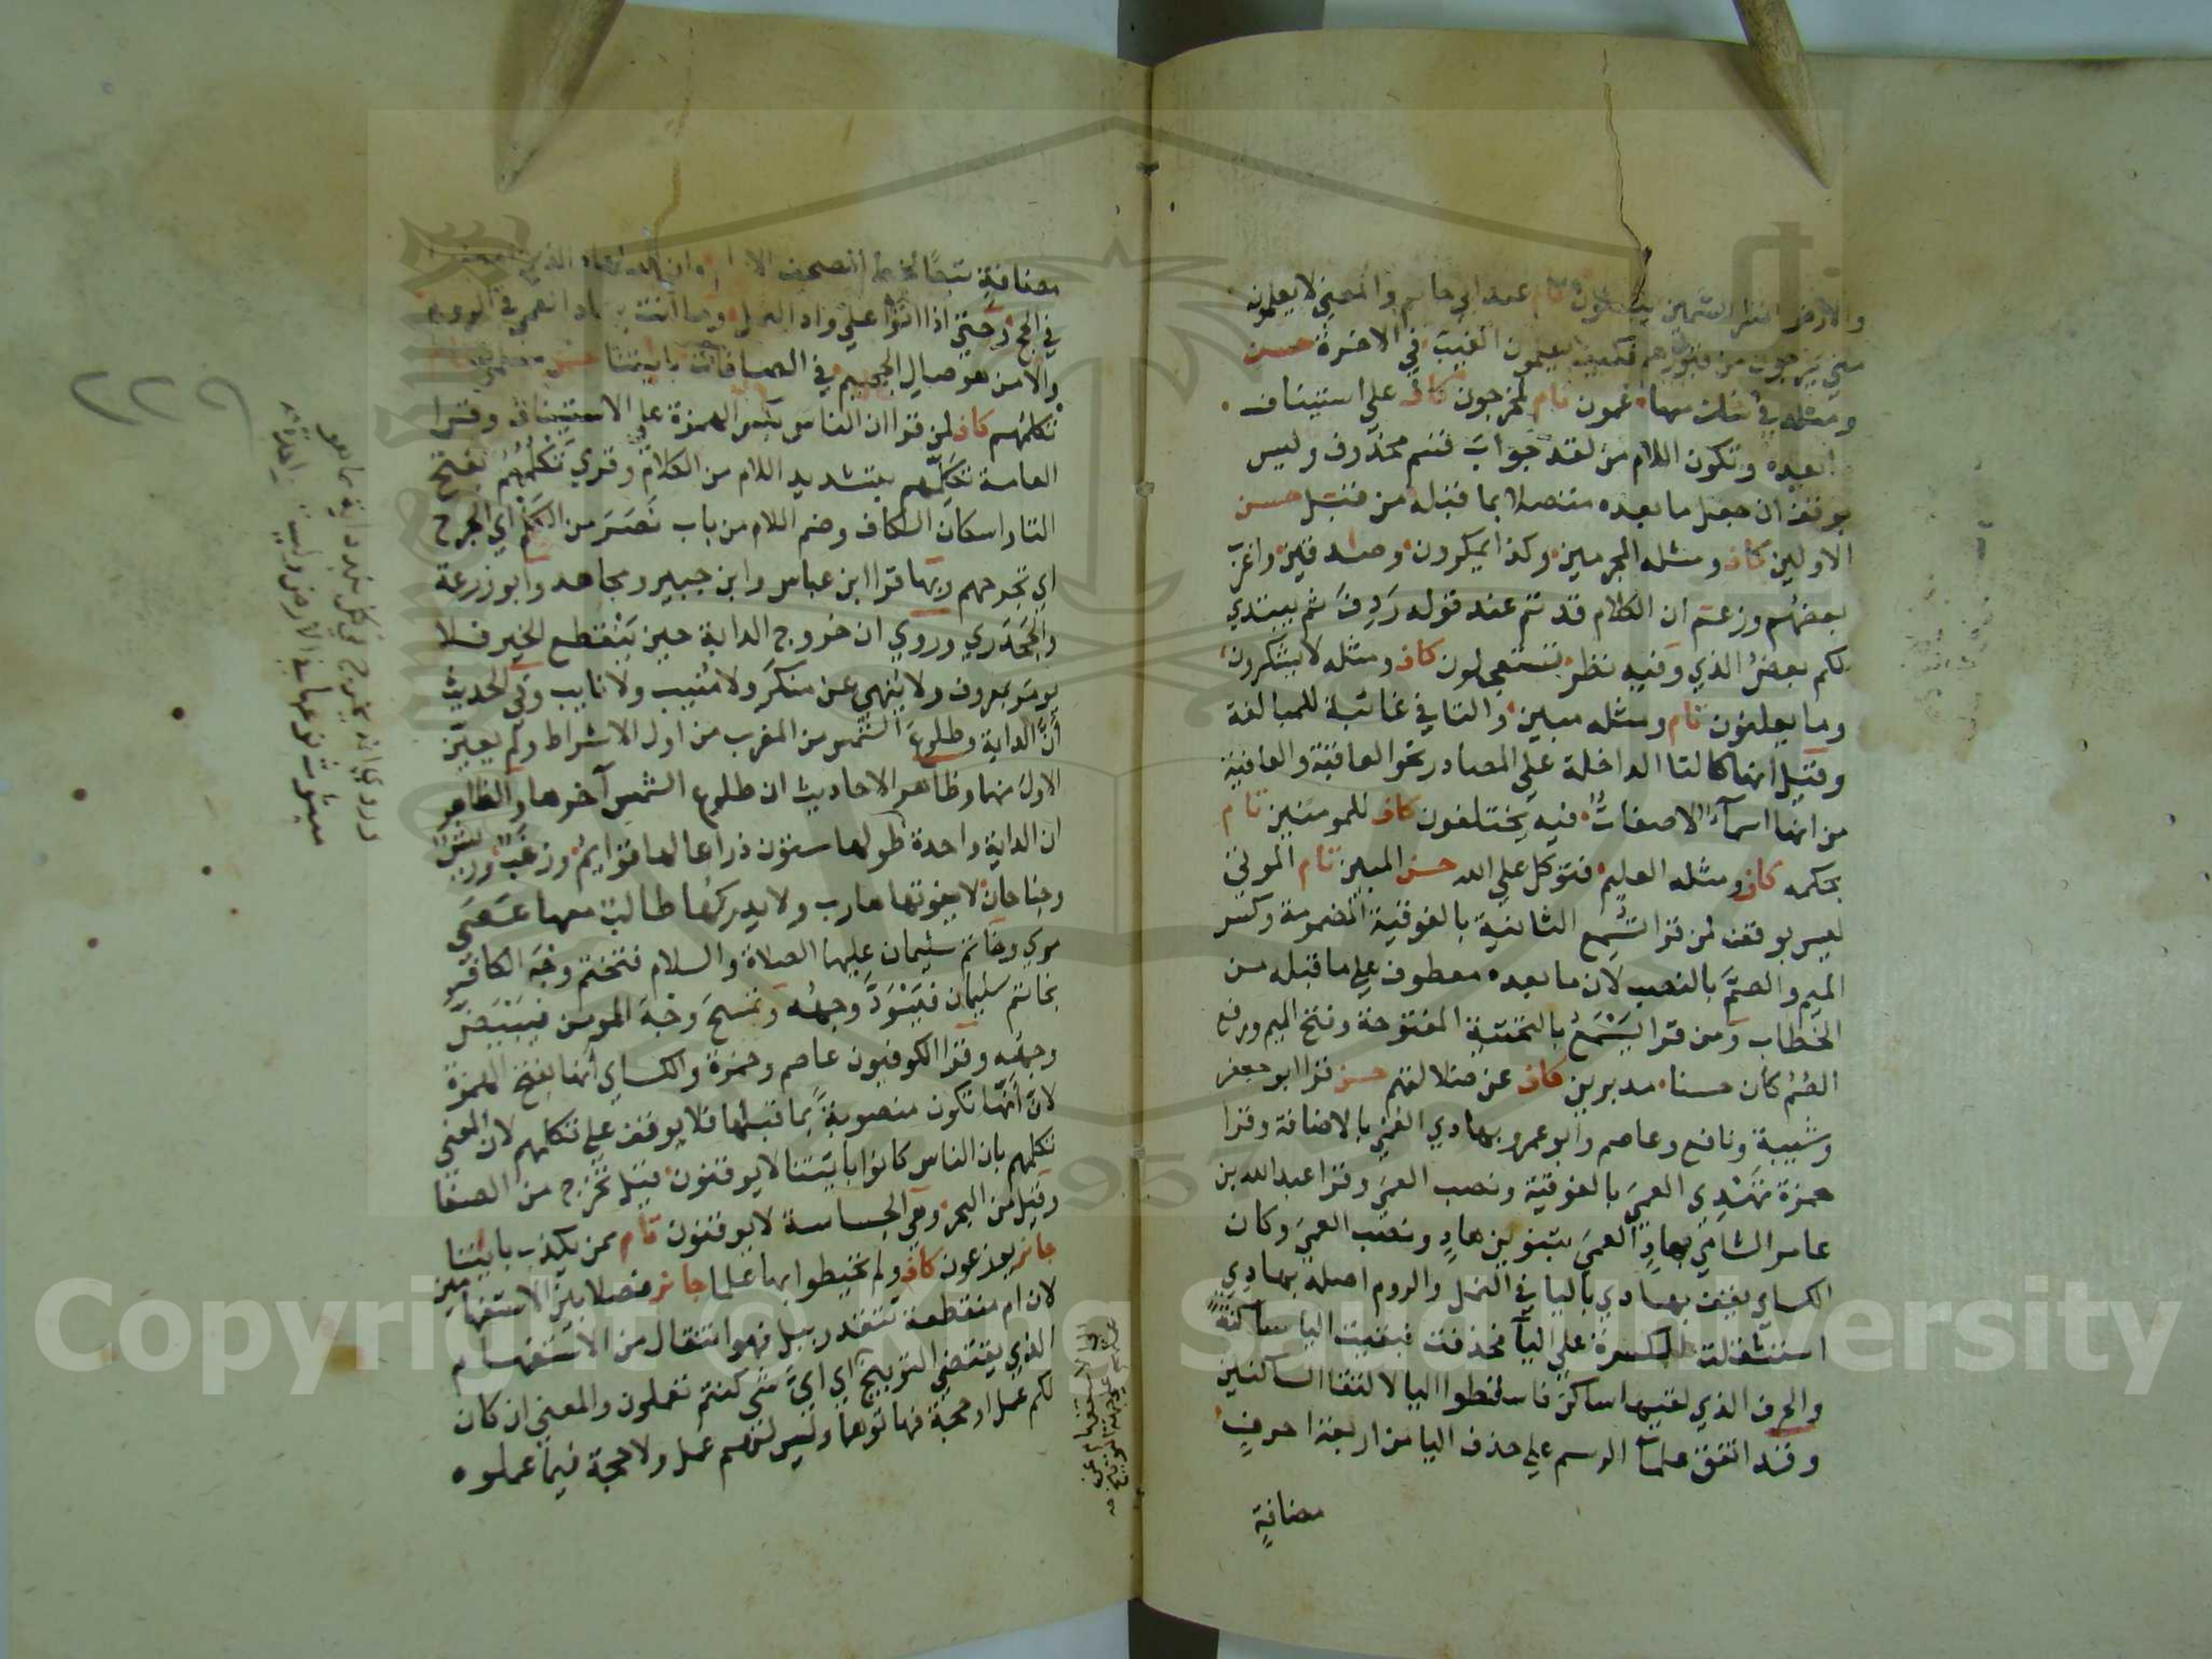 والارض انتظر الشمين يبعثون تام عند ابي حاتم والمعنى لا يعلمون
متى يخرجون من قبورهم فكيف يعلمون الغيب في الاخرة حسن
ومثله في شك منها عمون تام لمخرجون كاف على استيناف
ما بعده وتكون اللام من لقد جواب قسم محذوف وليس
بوقف ان جعل ما بعده متصلا بما قبله من قبل حسن
الاولين كاف ومثله المجرمين وكذا يمكرون وصدقين واغرب
بعضهم وزعم ان الكلام قد تم عند قوله ردف ثم يبتدي
لكم بعض الذي وفيه نظر تستعجلون كاف ومثله لا يشكرون
وما يعلنون تام ومثله مبين والتا في غائبة للمبالغة
وقيل انها كالتا الداخلة على المصادر نحو العاقبة والعافية
من انها اسماء لا صفات فيه يختلفون كاف للمومنين تام
بحكمه كاف ومثله العليم فتوكل على الله حسن المبين تام الموتى
ليس بوقف لمن قرا تسمع الثانية بالفوقية المضمومة وكسر
الميم والصم بالنصب لان ما بعده معطوف على ما قبله من
الخطاب ومن قرا يسمع بالتحتية المفتوحة وفتح الميم ورفع
الصم كان حسنا مدبرين كاف عن ضلالتهم حسن قرا ابو جعفر
وشيبة ونافع وعاصم وابو عمرو بهادي العمي بالاضافة وقرا
حمزة تهدي العمي بالفوقية ونصب العمي وقرا عبد الله بن
عامر الشامي بهاد العمي بتنوين هاد ونصب العمي وكان
الكساي يقف بهادي باليا في النمل والروم اصله بهادي
استثقلت الكسرة على اليا فحذفت فبقيت اليا ساكنة
والحرف الذي لقيها ساكن فاسقطوا اليا لالتقا الساكنين
وقد اتفق علما الرسم على حذف اليا من اربعة احرف
مضافة
مضافة تبعا لخط المصحف الامام وان الله لهاد الذين امنوا
في الحج وحتى اذا اتوا على واد النمل وما انت بهاد العمي في الروم
والا من هو صال الجحيم في الصافات باياتنا حسن مسلمون تام
تكلمهم كاف لمن قرا ان الناس بكسر الهمزة على الاستيناف وقرا
العامة تكلمهم بتشديد اللام من الكلام وقري تكلمهم بفتح
التا واسكان الكاف وضم اللام من باب نصر من الكلم اي الجرح
اي تجرحهم وبها قرا ابن عباس وابن جبير ومجاهد وابو زرعة
والجحدري وروي ان خروج الدابة حين ينقطع الخير فلا
يومر بمعروف ولا ينهي عن منكر ولا منيب ولا نايب وفي الحديث
ان الدابة وطلوع الشمس من المغرب من اول الاشراط ولم يعين
الاول منها وظاهر الاحاديث ان طلوع الشمس آخرها والظاهر
ان الدابة واحدة طولها ستون ذراعا لها قوايم وزغب وريش
وجناحان لا يفوتها هارب ولا يدركها طالب معها عصى
موسي وخاتم سليمان عليهما الصلاة والسلام فتختم وجه الكافر
بخاتم سليمان فيسود وجهه وتمسح وجه المومن فيبيض
وجهه وقرا الكوفيون عاصم وحمزة والكساي انها بفتح الهمزة
لان انها تكون منصوبة بما قبلها فلا يوقف على تكلمهم لان المعنى
تكلمهم بان الناس كانوا باياتنا لا يوقنون قيل تخرج من الصفا
وقيل من البحر وهي الجساسة لا يوقنون تام ممن يكذب باياتنا
جائز يوزعون كاف ولم تحيطوا بها علما جائز متصلا بين الاستفهامين
لان ام منقطعة تتقدر ببل فهو انتقال من الاستفهام
الذي يقتضي التوبيخ اي اي شي كنتم تعملون والمعنى ان كان
لكم عمل او حجة فهاتوها وليس لهم عمل ولا حجة فيما عملوه
٢٢٩
وروي انه يخرج في كل بلد دابة مما هو
مبثوث نوعها في الارض وليست واحدة
Copyright © King Saud University
1957